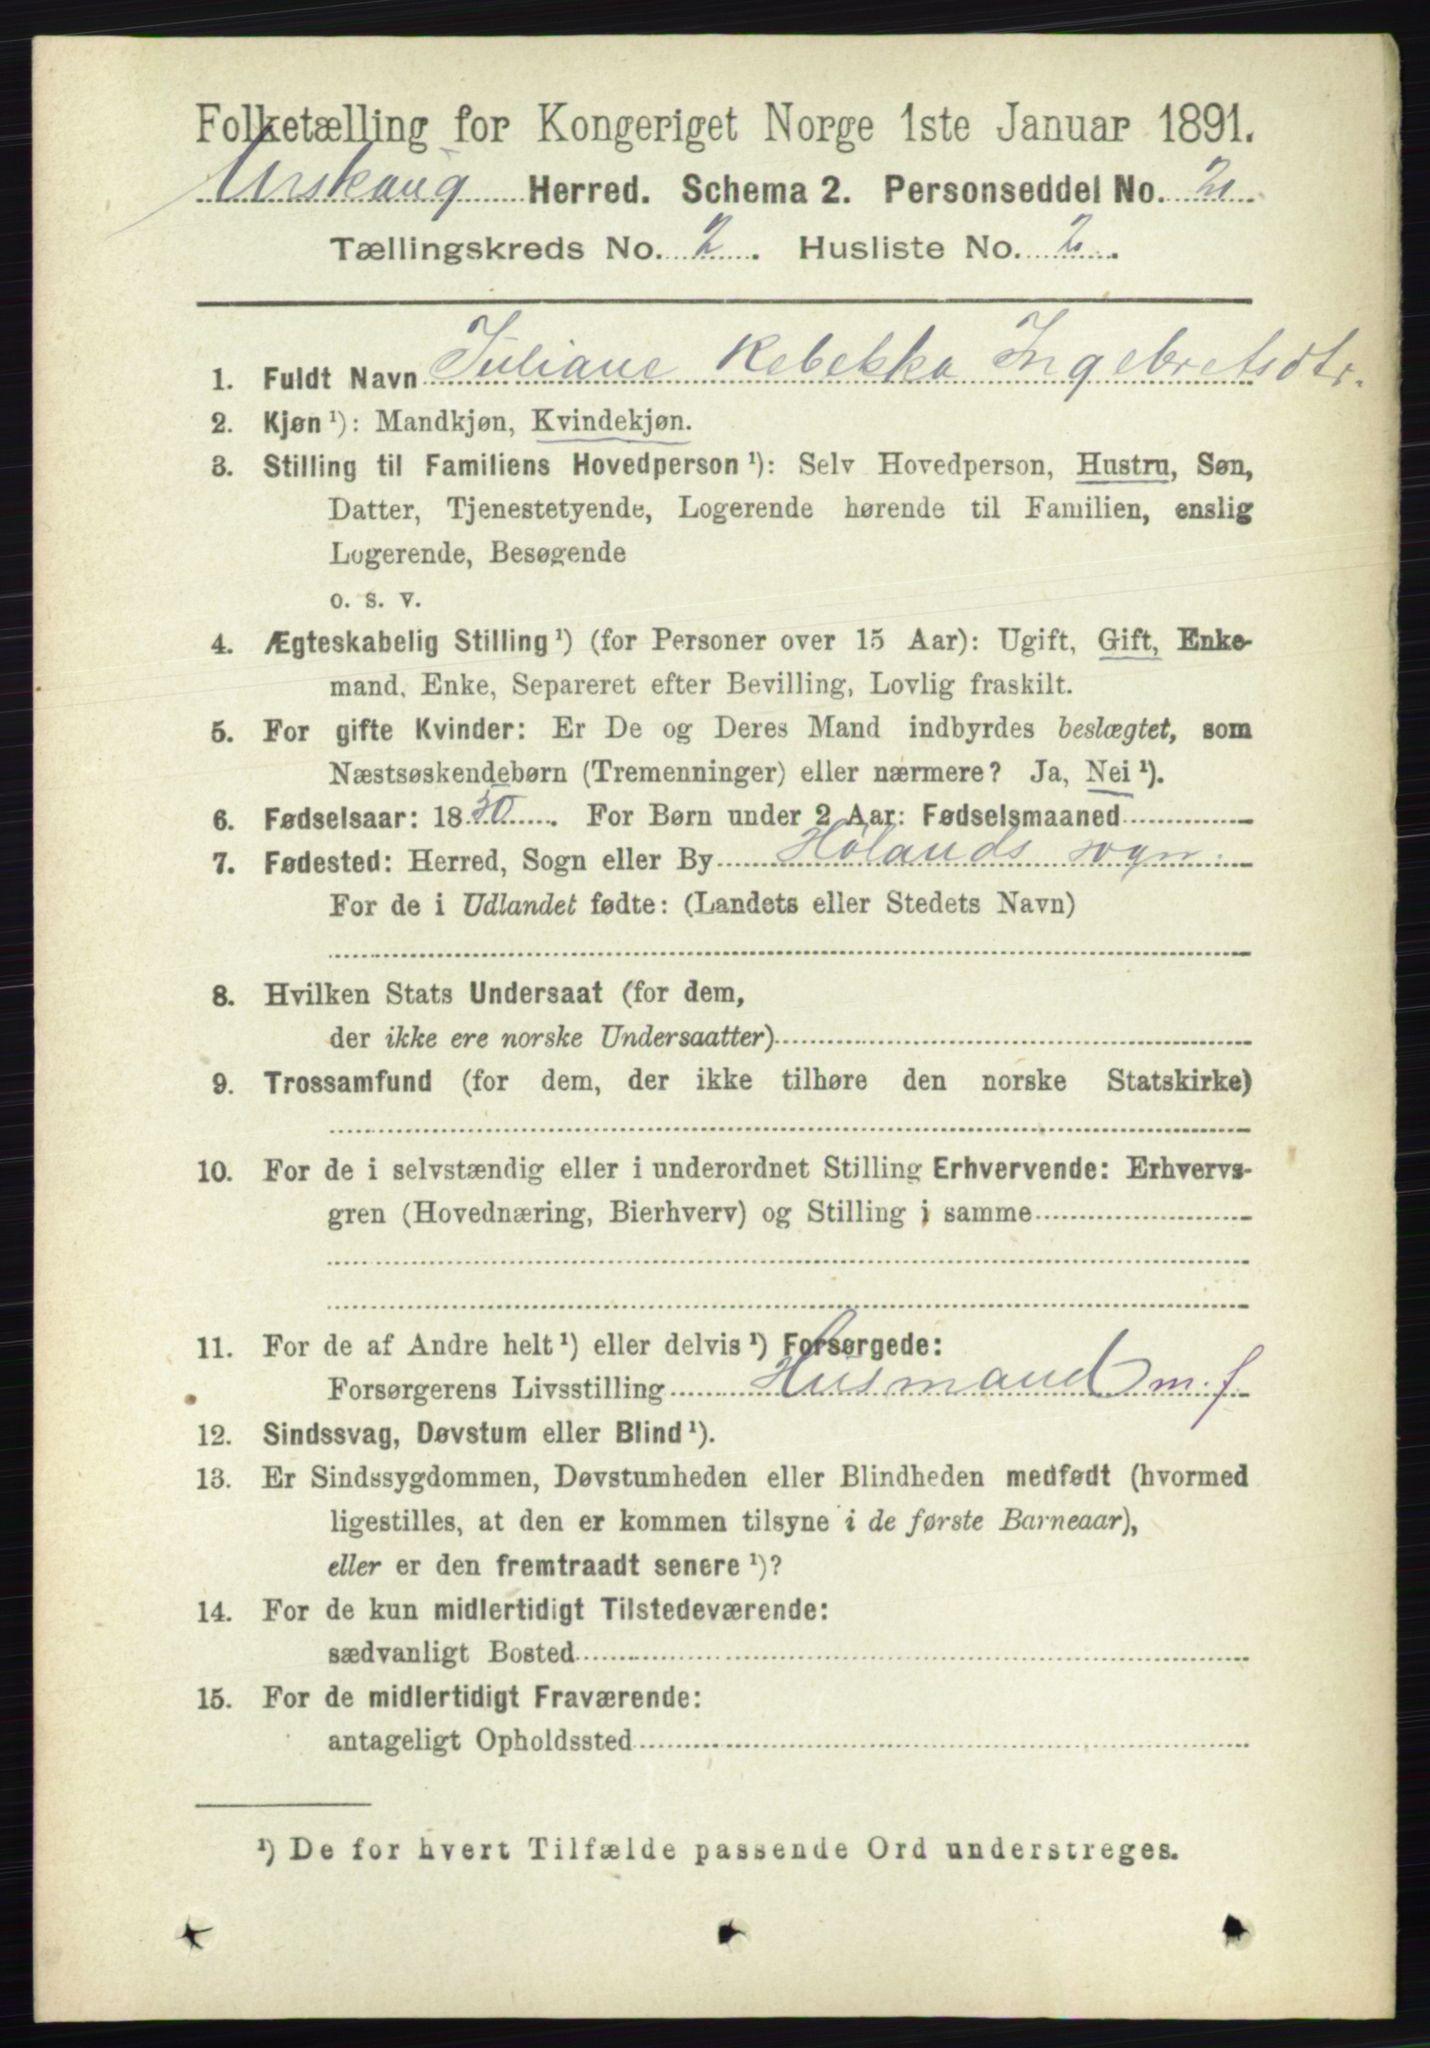 Folketælling for Kongeriget Norge 1ste Januar 1891.
Urskaug Herred. Schema 2. Personseddel No. 2
Tællingskreds No. 2. Husliste No. 2.
1. Fuldt Navn Juliane Rebekka Ingebretsdtr.
2. Kjøn ¹): Mandkjøn, Kvindekjøn.
3. Stilling til Familiens Hovedperson ¹): Selv Hovedperson, Hustru, Søn,
Datter, Tjenestetyende, Logerende hørende til Familien, enslig
Logerende, Besøgende
o. s. v.
4. Ægteskabelig Stilling ¹) (for Personer over 15 Aar): Ugift, Gift, Enke-
mand, Enke, Separeret efter Bevilling, Lovlig fraskilt.
5. For gifte Kvinder: Er De og Deres Mand indbyrdes beslægtet, som
Næstsøskendebørn (Tremenninger) eller nærmere? Ja, Nei ¹).
6. Fødselsaar: 1830. For Børn under 2 Aar: Fødselsmaaned
7. Fødested: Herred, Sogn eller By Hølands sogn.
For de i Udlandet fødte: (Landets eller Stedets Navn)
8. Hvilken Stats Undersaat (for dem,
der ikke ere norske Undersaatter)
9. Trossamfund (for dem, der ikke tilhøre den norske Statskirke)
10. For de i selvstændig eller i underordnet Stilling Erhvervende: Erhvervs-
gren (Hovednæring, Bierhverv) og Stilling i samme
11. For de af Andre helt ¹) eller delvis ¹) Forsørgede:
Forsørgerens Livsstilling Husmand m. f.
12. Sindssvag, Døvstum eller Blind ¹).
13. Er Sindssygdommen, Døvstumheden eller Blindheden medfødt (hvormed
ligestilles, at den er kommen tilsyne i de første Barneaar),
eller er den fremtraadt senere ¹)?
14. For de kun midlertidigt Tilstedeværende:
sædvanligt Bosted
15. For de midlertidigt Fraværende:
antageligt Opholdssted
¹) De for hvert Tilfælde passende Ord understreges.